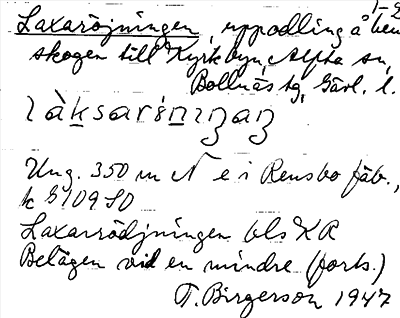 1-2
Laxaröjningen, uppodling å hem
skogen till Kyrkbyn, Alfta sn,
Bollnäs tg, Gävl. l.
làksarö̀niŋaŋ
Ung. 350 m N e i Rensbo fäb.,
k G109 SO
Laxarrödjningen bls KR
Belägen vid en mindre (forts.)
T. Birgerson 1947